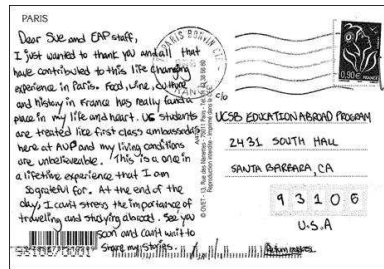 PARIS
Dear Sue and EAP staff,
I just wanted to thank you and all that
have contributed to this life changing
experience in Paris. Food, wine, culture
and history in France has really found a
place in my life and heart. US students
are treated like first class ambassadors
here at AUP and my living conditions
are unbelieveable. This is a one in
a lifetive experience that I am
so grateful for. At the end of the
day, I can't stress the importance of
traveling and studying abroad. See you
soon and can't wait to
share my stories.
PARIS BONVIN
0,90€
c/o
UCSB EDUCATION ABROAD PROGRAM
2431 SOUTH HALL
SANTA BARBARA, CA
93106
U.S.A